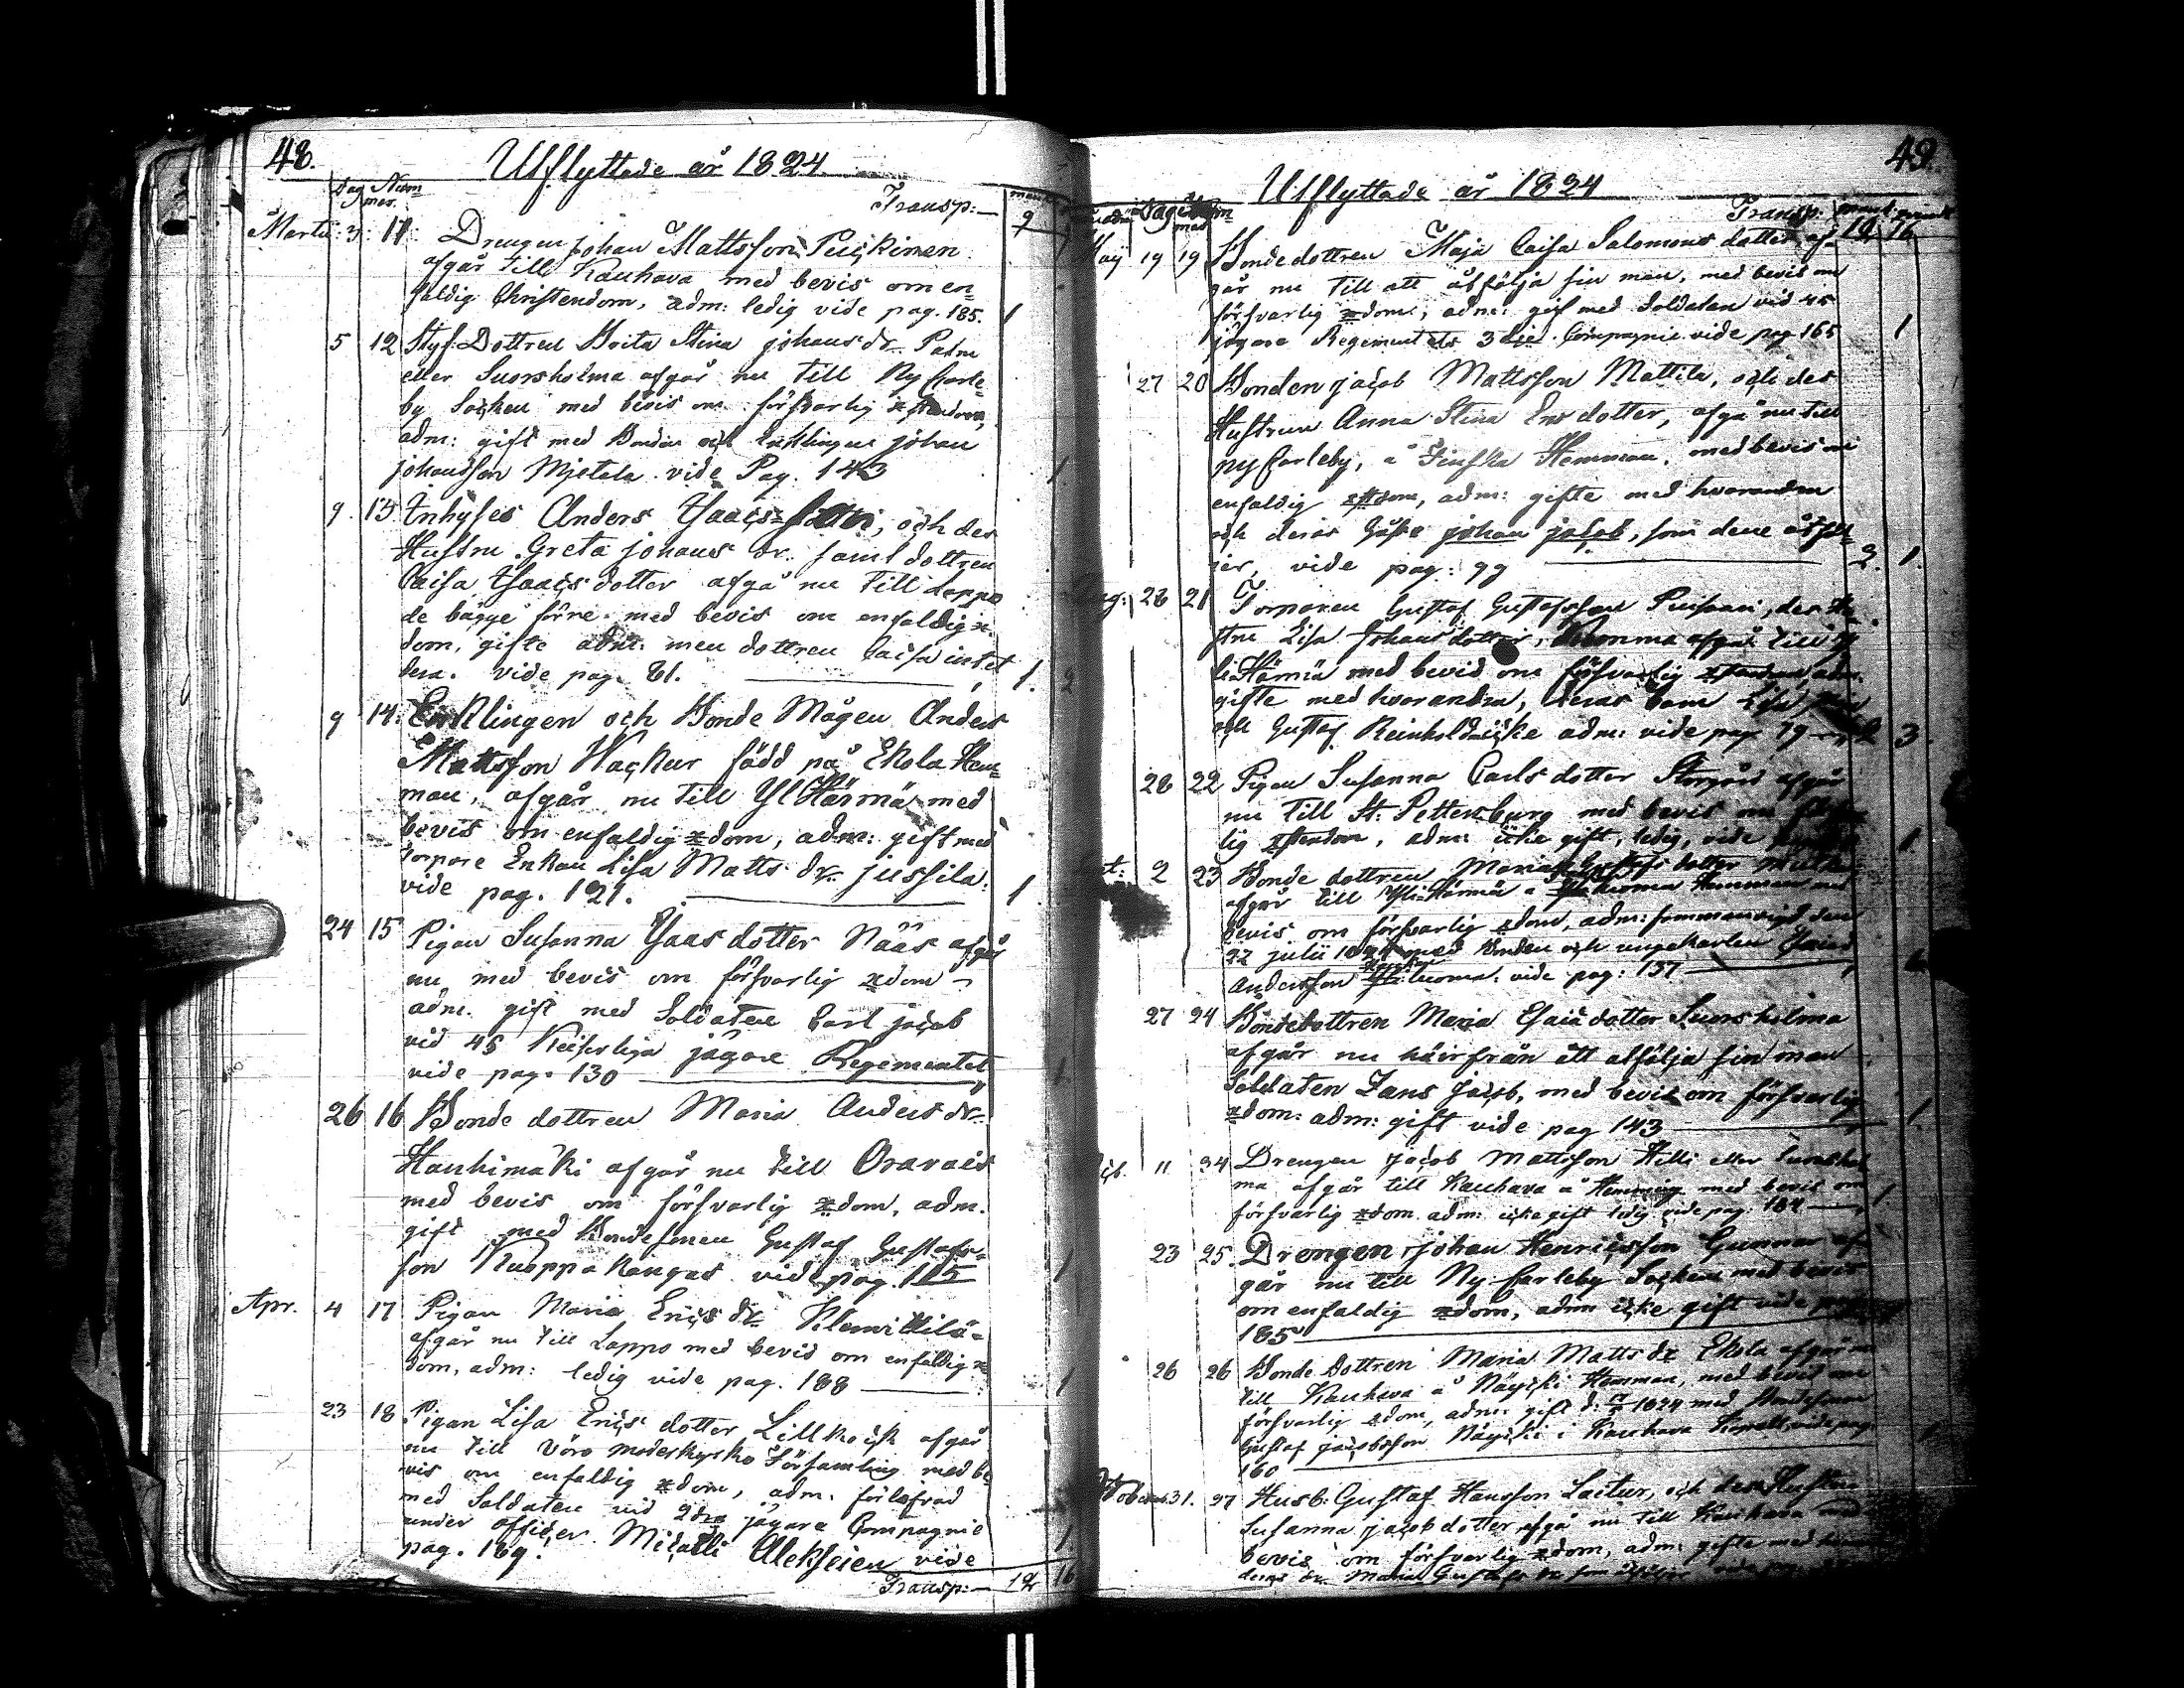 48.
Utflyttade år 1824.
Dag Num=
mer.
Transp:— 9
Martii 3. 11. Drengen Johan Mattsson Puckinen
afgår till Kauhava med bevis om en=
faldig Christendom, adm: ledig vide pag. 185. 1
5 12 Styf-Dottren Brita Stina Johansdr. Palm
eller Suorsholma afgår nu till Ny Carle=
by Socken med bevis om försvarlig
adm: gift med Bonden och Enklingen Johan
Johansson Mjetala vide Pag. 143 1.
9. 13. Inhyses Anders och des
Hustru Greta Johans dr. samt dottren
Caisa Isaacs dotter afgå nu till Lappo
de bägge förre med bevis om enfaldig x.
dom, gifte adm. men dottren Caisa intet
dera. vide pag. 81. 1. 2
9 14. Enklingen och Bonde Mågen Anders
Mattsson Wackur född på Ekola Hem=
man, afgår nu till Yl Härmä med
bevis om enfaldig xdom, adm: gift med
Torpare Enkan Lisa Matts dr. Jussila.
vide pag. 121. 1
24 15 Pigan Susanna Isaas dotter Nääs afgår
nu med bevis om försvarlig xdom
adm. gift med Soldaten Carl Jacob
vid 45 Keiserliga Jägare Regementet
vide pag. 130 1
26 16 Bonde dottren Maria Anders dr.
Hanhimäki afgår nu till Oravais
med bevis om försvarlig xdom, adm.
gift med Bondesonen Gustaf Gustafs=
son Kuoppakangas vide pag. 115 1
Apr. 4 17 Pigan Maria Erics dr.
afgår nu till Lappo med bevis om enfaldig x
dom, adm: ledig vide pag. 188 1
23 18 Pigan Lisa Erics dotter Lillkåck afgår
nu till Vörå moderkyrko Församling med be
vis om enfaldig xdom, adm. förlofvad
med Soldaten vid 2dra Jägare Compagnie
under officer Micaeli Alekseien vide
pag. 169. 1
Transp:— 12 16
49.
Utflyttade år 1824
Dag Num=
mer
Transp. 12 16
Maij 19 19 Bondedottren Maja Caisa Salomons dotter, af=
går nu till att åtfölja sin man, med bevis om
försvarlig xdom:, adm: gift med Soldaten vid 45
Jägare Regementets 3die Compagnie vide pag 165 1
27 20 Bonden Jacob Mattsson Mattila, och des
Hustrun Anna Stina Ers dotter, afgå nu till
Ny Carleby, å Finska Hemman, med bevis om
enfaldig xdom, adm: gifte med hvarandra
och deras Gåsse Johan Jacob, som dem åtföl=
jer, vide pag: 99 2. 1.
Aug: 28 21 Torparen Gustaf Gustafsson des Hu=
stru Lisa Johans dotter, afgå till
Härmä med bevis om försvarlig adm.
gifte med hvarandra, deras barn Lisa
och Gustaf Reinhold icke adm: vide pag 79 2 3.
28 22 Pigan Susanna Carls dotter Storgård afgår
nu till St: Pettersburg med bevis om
lig adm: icke gift, ledig, vide 1
2 23 Bonde dottren Maria Gustafs dotter
afgår till Yli Härmä å Hemman med
bevis om försvarlig xdom, adm: sammanvigd den
22 Julii 1824 med Bonden och ungekarlen
Andersson vide pag: 137
27 24 Bondedottren Maria Esaiædotter Suorsholma
afgår nu härifrån att åtfölja sin man
Soldaten Jacob, med bevis om försvarlig
xdom: adm: gift vide pag 143 1.
11 34 Drengen Jacob Mattsson Hilli eller Suorshol
ma afgår till Kauhava å med bevis om
försvarlig xdom adm: icke gift ledig vide pag. 184 1
23 25. Drengen Johan Henricsson Gunnar af=
går nu till Ny Carleby Socken med bevis
om enfaldig xdom, adm icke gift vide
185
26 26 Bonde Dottren Maria Matts dr Ekola afgår nu
till Kauhava å Hemman, med bevis om
försvarlig xdom, adm: gift d: 1824 med Bondesonen
Gustaf Jacobsson i Kauhava Kapell, vide pag.
160
31. 27 Husb: Gustaf Hansson och des Hustru
Susanna Jacobs dotter afgå nu till Kauhava med
bevis om försvarlig xdom, adm: gifte med
deras dr Maria Gustafs dr som